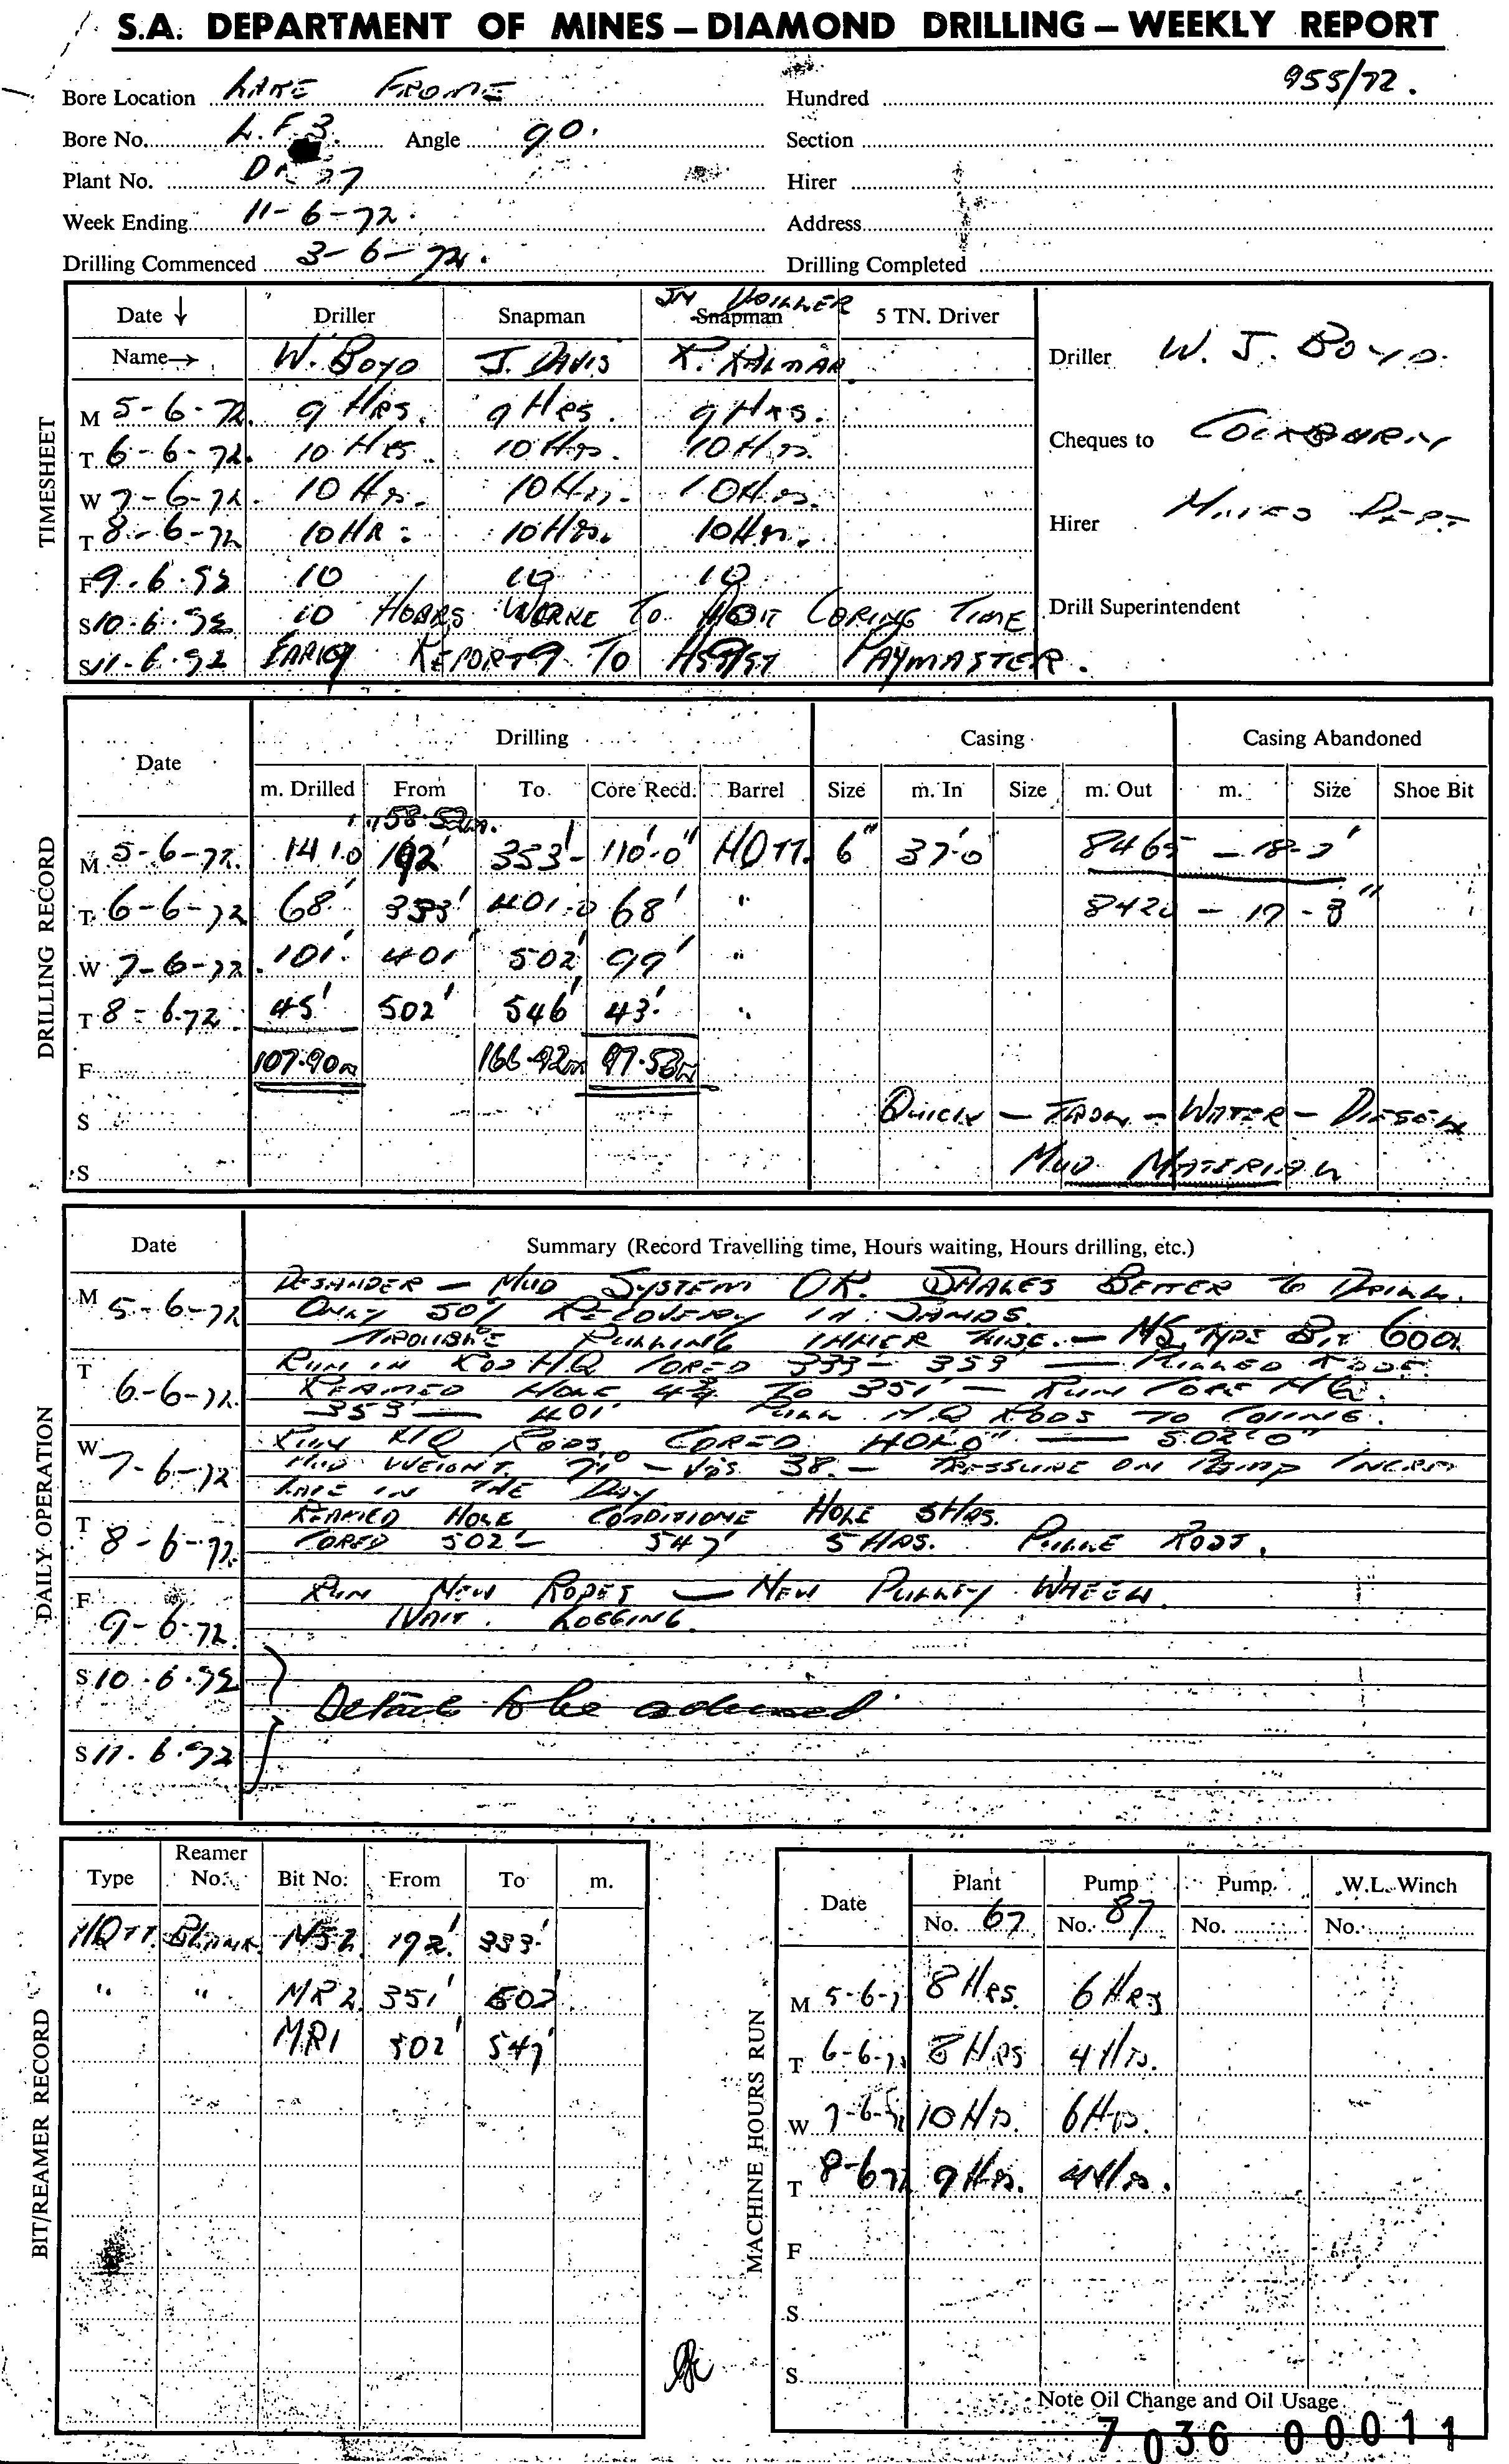 S.A. DEPARTMENT OF MINES – DIAMOND DRILLING – WEEKLY REPORT
955/72.
Bore Location LAKE FROME Hundred
Bore No. L.F.3. Angle 90. Section
Plant No. 27 Hirer
Week Ending 11-6-72. Address
Drilling Commenced 3-6-72. Drilling Completed
TIMESHEET
Date ↓ Driller Snapman Snapman DRILLER 5 TN. Driver
Name→ W. BOYD J. DAVIS K. KALMAR
Driller W. J. BOYD.
M 5-6-72. 9 HRS. 9 HRS. 9 HRS.
Cheques to COCKBURN
T 6-6-72. 10 HRS. 10 HRS. 10 HRS.
W 7-6-72. 10 HRS. 10 HRS. 10 HRS.
Hirer MINES DEPT
T 8-6-72 10 HR: 10 HRS. 10 HRS.
F 9.6.72 10 10 10
S 10.6.72 10 HOURS WORKE TO CORING TIME
Drill Superintendent
S 11.6.72 EARLY REPORT TO ASSIST PAYMASTER.
DRILLING RECORD
Date Drilling Casing Casing Abandoned
m. Drilled From To Core Recd. Barrel Size m. In Size m. Out m. Size Shoe Bit
58.52m.
M 5-6-72. 141.0 192' 353' 110'-0" HQTT. 6" 37'0 8465 – 18-2'
T 6-6-72 68' 333' 401.0 68' " 8420 – 17-8"
W 7-6-72. 101' 401' 502' 99' "
T 8-6-72 45' 502' 546' 43' "
F 107.90m 166.42m 97.53m
S QUICK – – WATER – DIESEL
S MUD MATERIAL
DAILY OPERATION
Date Summary (Record Travelling time, Hours waiting, Hours drilling, etc.)
M 5-6-72 DESANDER – MUD SYSTEM OK. SHALES BETTER TO DRILL.
ONLY 50% RECOVERY IN SANDS.
TROUBLE PULLING INNER TUBE. – TYPE BIT GOOD.
T 6-6-72. RUN IN ROD HQ CORED 333'– 353 — PULLED RODS.
REAMED HOLE 4¾ TO 351' – RUN CORE HQ.
353' — 401' PULL H.Q RODS TO CASING.
W 7-6-72 RUN HQ RODS. CORED 401'0" — 502'0"
MUD WEIGHT. 71° – VIS. 38. – PRESSURE ON PUMP
LATE IN THE DAY
T 8-6-72. REAMED HOLE CONDITIONE HOLE 5 HRS.
CORED 502'– 547' 5 HRS. PULLE RODS.
F 9-6-72. RUN NEW ROPES – NEW PULLEY WHEEL.
WAIT. LOGGING.
S 10.6.72 Details to be advised
S 11.6.72
BIT/REAMER RECORD
Type Reamer No. Bit No. From To m.
HQTT. BLANK NS2 192' 333'
" " MR2 351' 502'
MR1 502' 547'
MACHINE HOURS RUN
Date Plant Pump Pump. W.L. Winch
No. 67 No. 87 No. No.
M 5-6-7 8 HRS. 6 HRS
T 6-6-72 8 HRS 4 HRS.
W 7-6-72 10 HRS. 6 HRS.
T 8-6-72 9 HRS. 4 HRS.
F
S
S
Note Oil Change and Oil Usage
7 036 00011